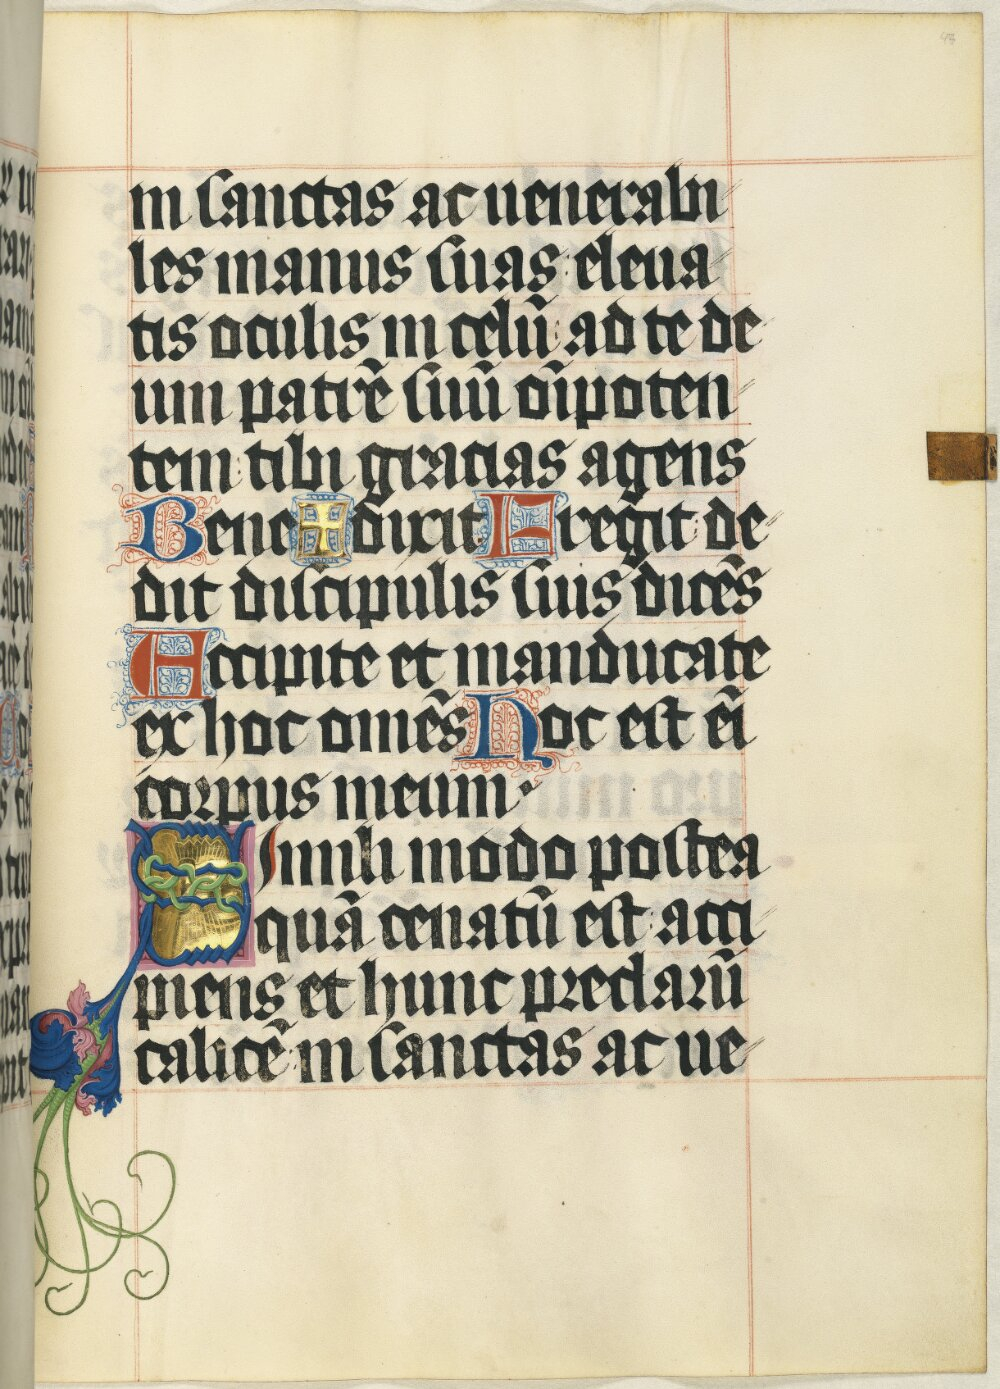 in sanctas ac uenerabi
les manus suas eleua
tis oculis in celū ad te de
um patrē suū om̄ipoten
tem tibi gracias agens
Bene ✝ dixit Fregit de
dit discipulis suis dicēs
Accipite et manducate
ex hoc omēs Hoc est em̄
corpus meum
Simili modo postea
quā cenatū est acci
piens et hunc preclarū
calicē in sanctas ac ue